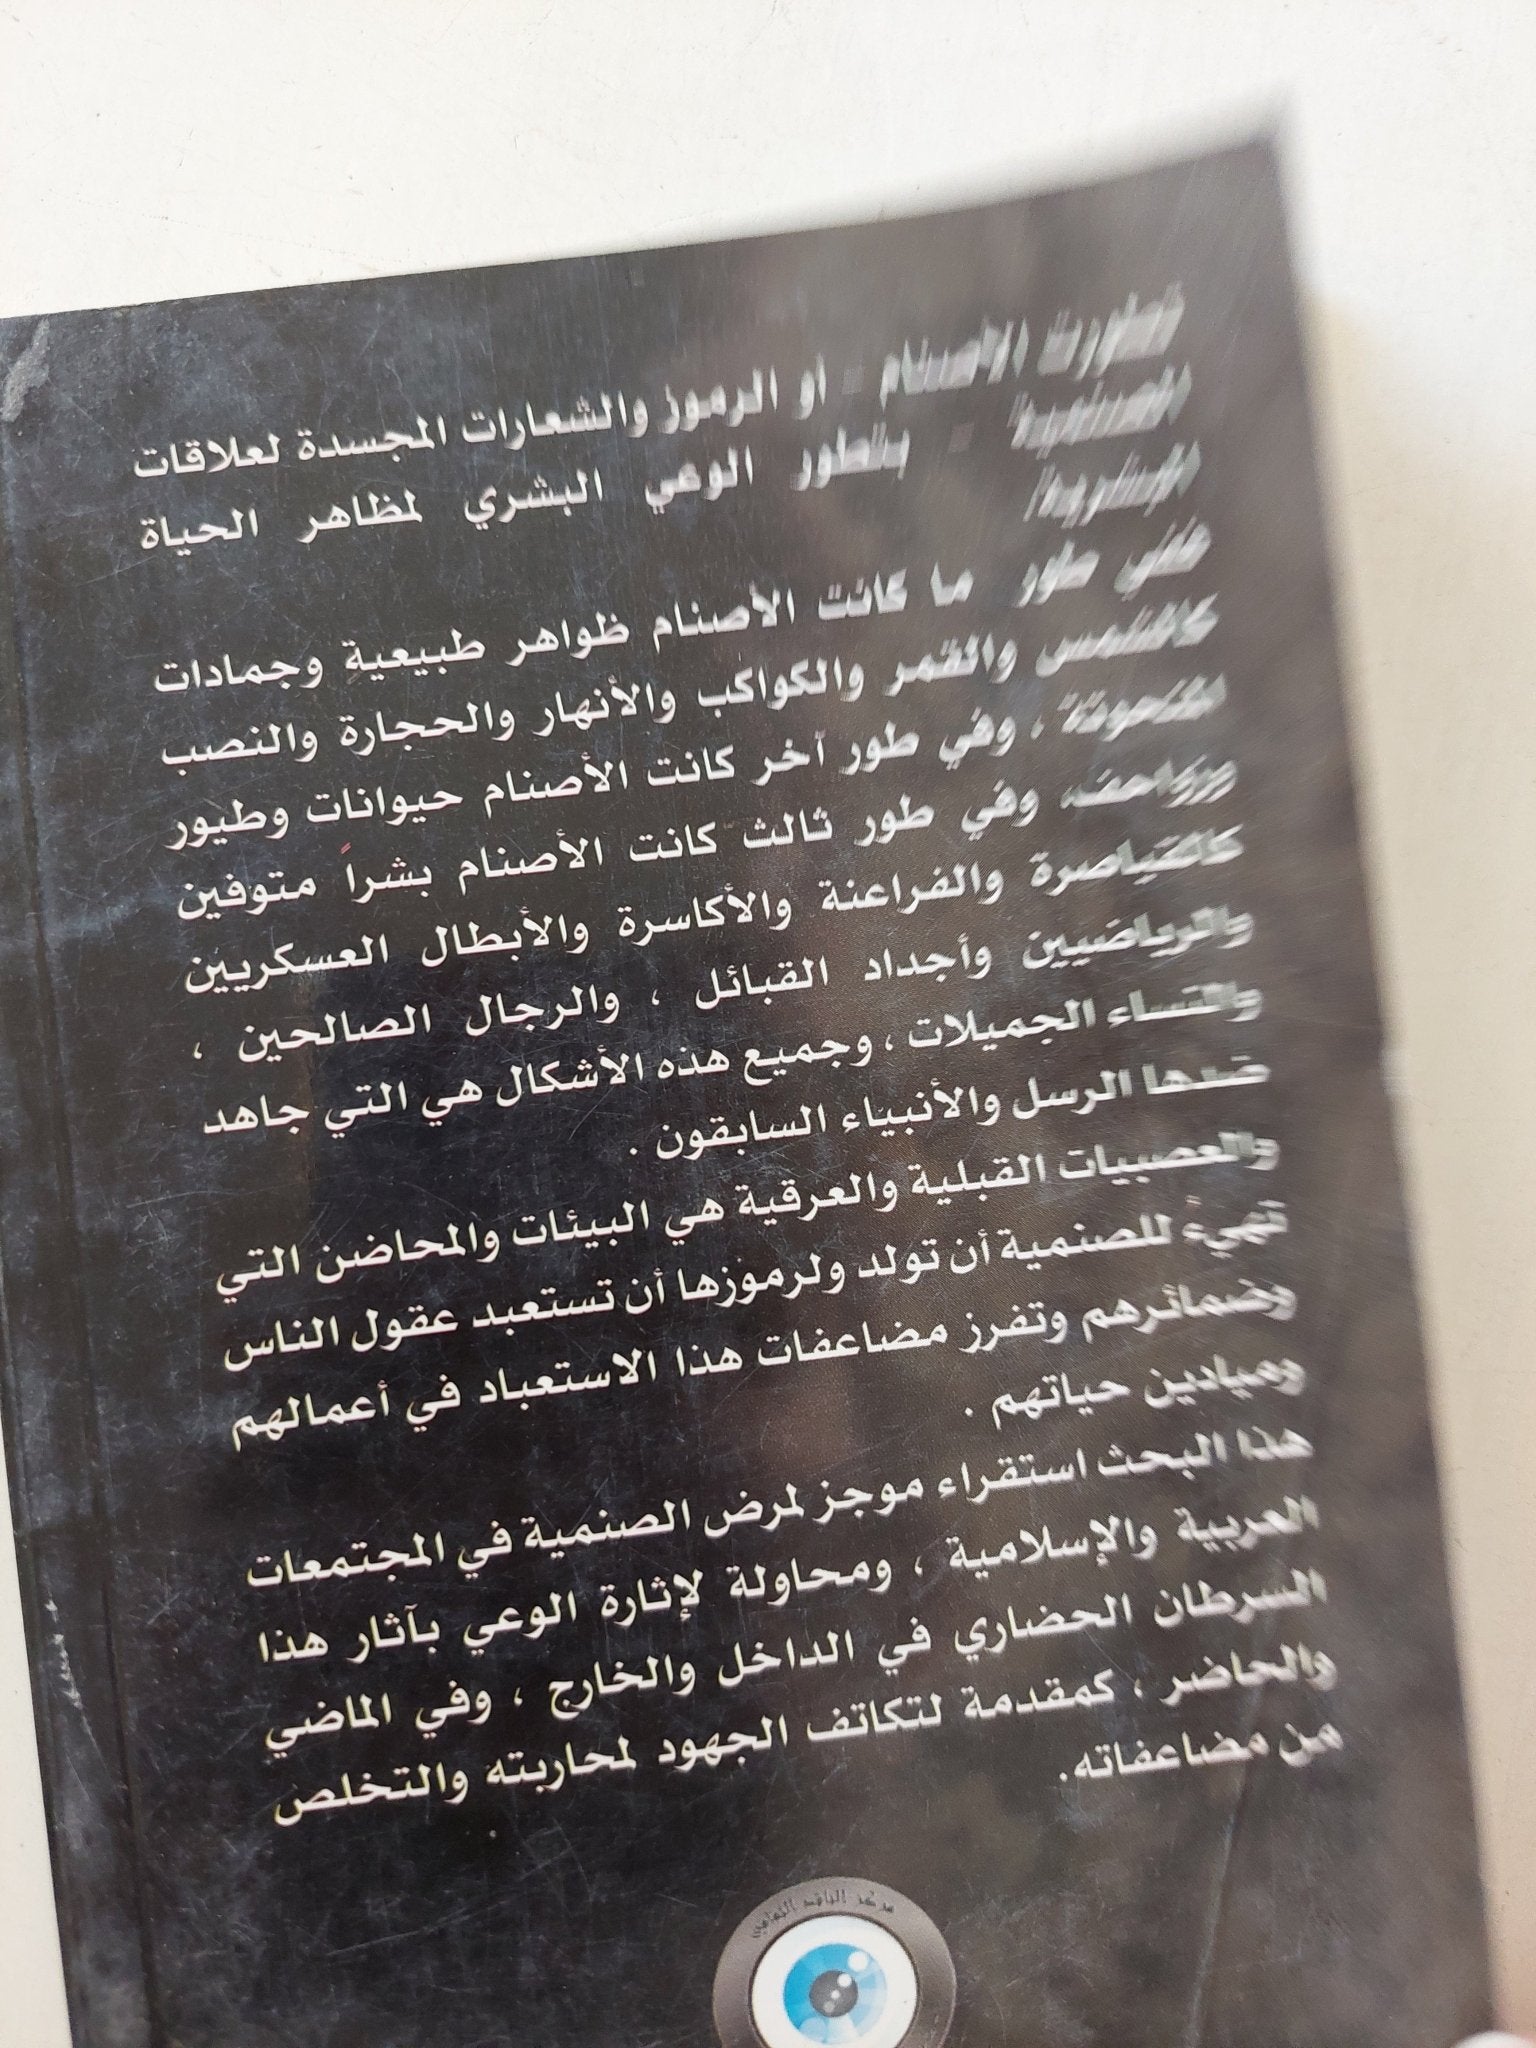 تطورت الأصنام - أو الرموز والشعارات المجسدة لعلاقات
الصنمية - بتطور الوعي البشري لمظاهر الحياة
البشرية/
ففي طور ما كانت الأصنام ظواهر طبيعية وجمادات
كالشمس والقمر والكواكب والأنهار والحجارة والنصب
المنحوتة ، وفي طور آخر كانت الأصنام حيوانات وطيور
وزواحف، وفي طور ثالث كانت الأصنام بشراً متوفين
كالقياصرة والفراعنة والأكاسرة والأبطال العسكريين
والرياضيين وأجداد القبائل ، والرجال الصالحين ،
والنساء الجميلات ، وجميع هذه الأشكال هي التي جاهد
ضدها الرسل والأنبياء السابقون .
والعصبيات القبلية والعرقية هي البيئات والمحاضن التي
تهيء للصنمية أن تولد ولرموزها أن تستعبد عقول الناس
وضمائرهم وتفرز مضاعفات هذا الاستعباد في أعمالهم
وميادين حياتهم .
هذا البحث استقراء موجز لمرض الصنمية في المجتمعات
العربية والإسلامية ، ومحاولة لإثارة الوعي بآثار هذا
السرطان الحضاري في الداخل والخارج ، وفي الماضي
والحاضر ، كمقدمة لتكاتف الجهود لمحاربته والتخلص
من مضاعفاته.
مركز الناقد الثقافي